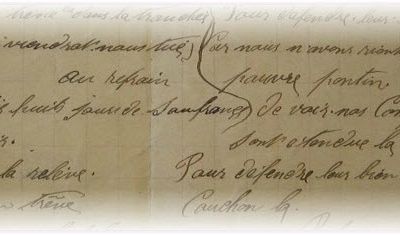 dans la tranchée
viendrat nous tué
au refrain
huit jours de Saufrance
la relève.
trêve
Pour défendre leur
Car nous n'avons rient
pauvre pontin
de voir nos Com
sont etendue la
Pour défendre leur bien
Couchon la